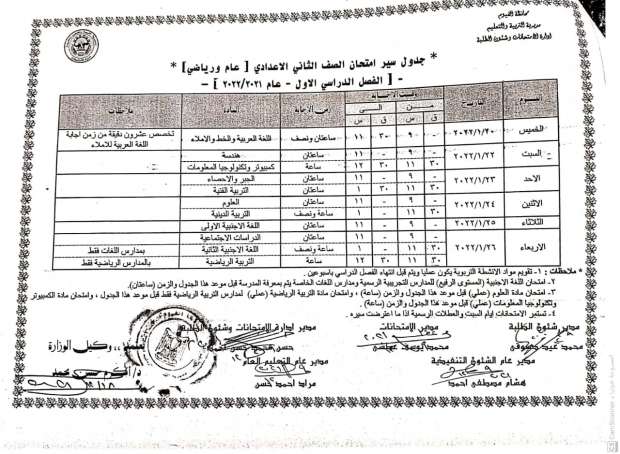 محافظة الفيوم
مديرية التربية والتعليم
إدارة الامتحانات وشئون الطلبة
* جدول سير امتحان الصف الثاني الاعدادي [ عام ورياضي ] *
- [ الفصل الدراسي الاول - عام ٢٠٢٢/٢٠٢١ ] -
اليوم التاريخ توقيت الاجابة زمن الاجابة المادة ملاحظات
من الى
ق س ق س
الخميس ٢٠٢٢/١/٢٠ - ٩ ٣٠ ١١ ساعتان ونصف اللغة العربية والخط والاملاء تخصص عشرون دقيقة من زمن اجابة اللغة العربية للاملاء
السبت ٢٠٢٢/١/٢٢ - ٩ - ١١ ساعتان هندسة
٣٠ ١١ ٣٠ ١٢ ساعة كمبيوتر وتكنولوجيا المعلومات
الاحد ٢٠٢٢/١/٢٣ - ٩ - ١١ ساعتان الجبر والاحصاء
٣٠ ١١ ٣٠ ١ ساعتان التربية الفنية
الاثنين ٢٠٢٢/١/٢٤ - ٩ - ١١ ساعتان العلوم
٣٠ ١١ - ١ ساعة ونصف التربية الدينية
الثلاثاء ٢٠٢٢/١/٢٥ - ٩ - ١١ ساعتان اللغة الاجنبية الاولى
الاربعاء ٢٠٢٢/١/٢٦ - ٩ - ١١ ساعتان الدراسات الاجتماعية
٣٠ ١١ - ١ ساعة ونصف اللغة الاجنبية الثانية بمدارس اللغات فقط
٣٠ ١١ ٣٠ ١٢ ساعة التربية الرياضية بالمدارس الرياضية فقط
* ملاحظات : ١- تقويم مواد الانشطة التربوية يكون عمليا ويتم قبل انتهاء الفصل الدراسي باسبوعين .
٢. امتحان اللغة الاجنبية (المستوى الرفيع) للمدارس التجريبية الرسمية ومدارس اللغات الخاصة يتم بمعرفة المدرسة قبل موعد هذا الجدول والزمن (ساعتان).
٣. امتحان مادة العلوم (عملي) قبل موعد هذا الجدول والزمن (ساعة) ، وامتحان مادة التربية الرياضية (عملي) لمدارس التربية الرياضية فقط قبل موعد هذا الجدول ، وامتحان مادة الكمبيوتر
وتكنولوجيا المعلومات (عملي) قبل موعد هذا الجدول والزمن (ساعة)
٤. تستمر الامتحانات ايام السبت والعطلات الرسمية اذا ما اعترضت سيره .
مدير شئون الطلبة مدير الامتحانات مدير إدارة الامتحانات وشئون الطلبة
محمد عيد
وكيل الوزارة
مدير عام الشئون التنفيذية مدير عام التعليم العام
هشام مصطفى احمد مراد احمد حسن
CamScanner